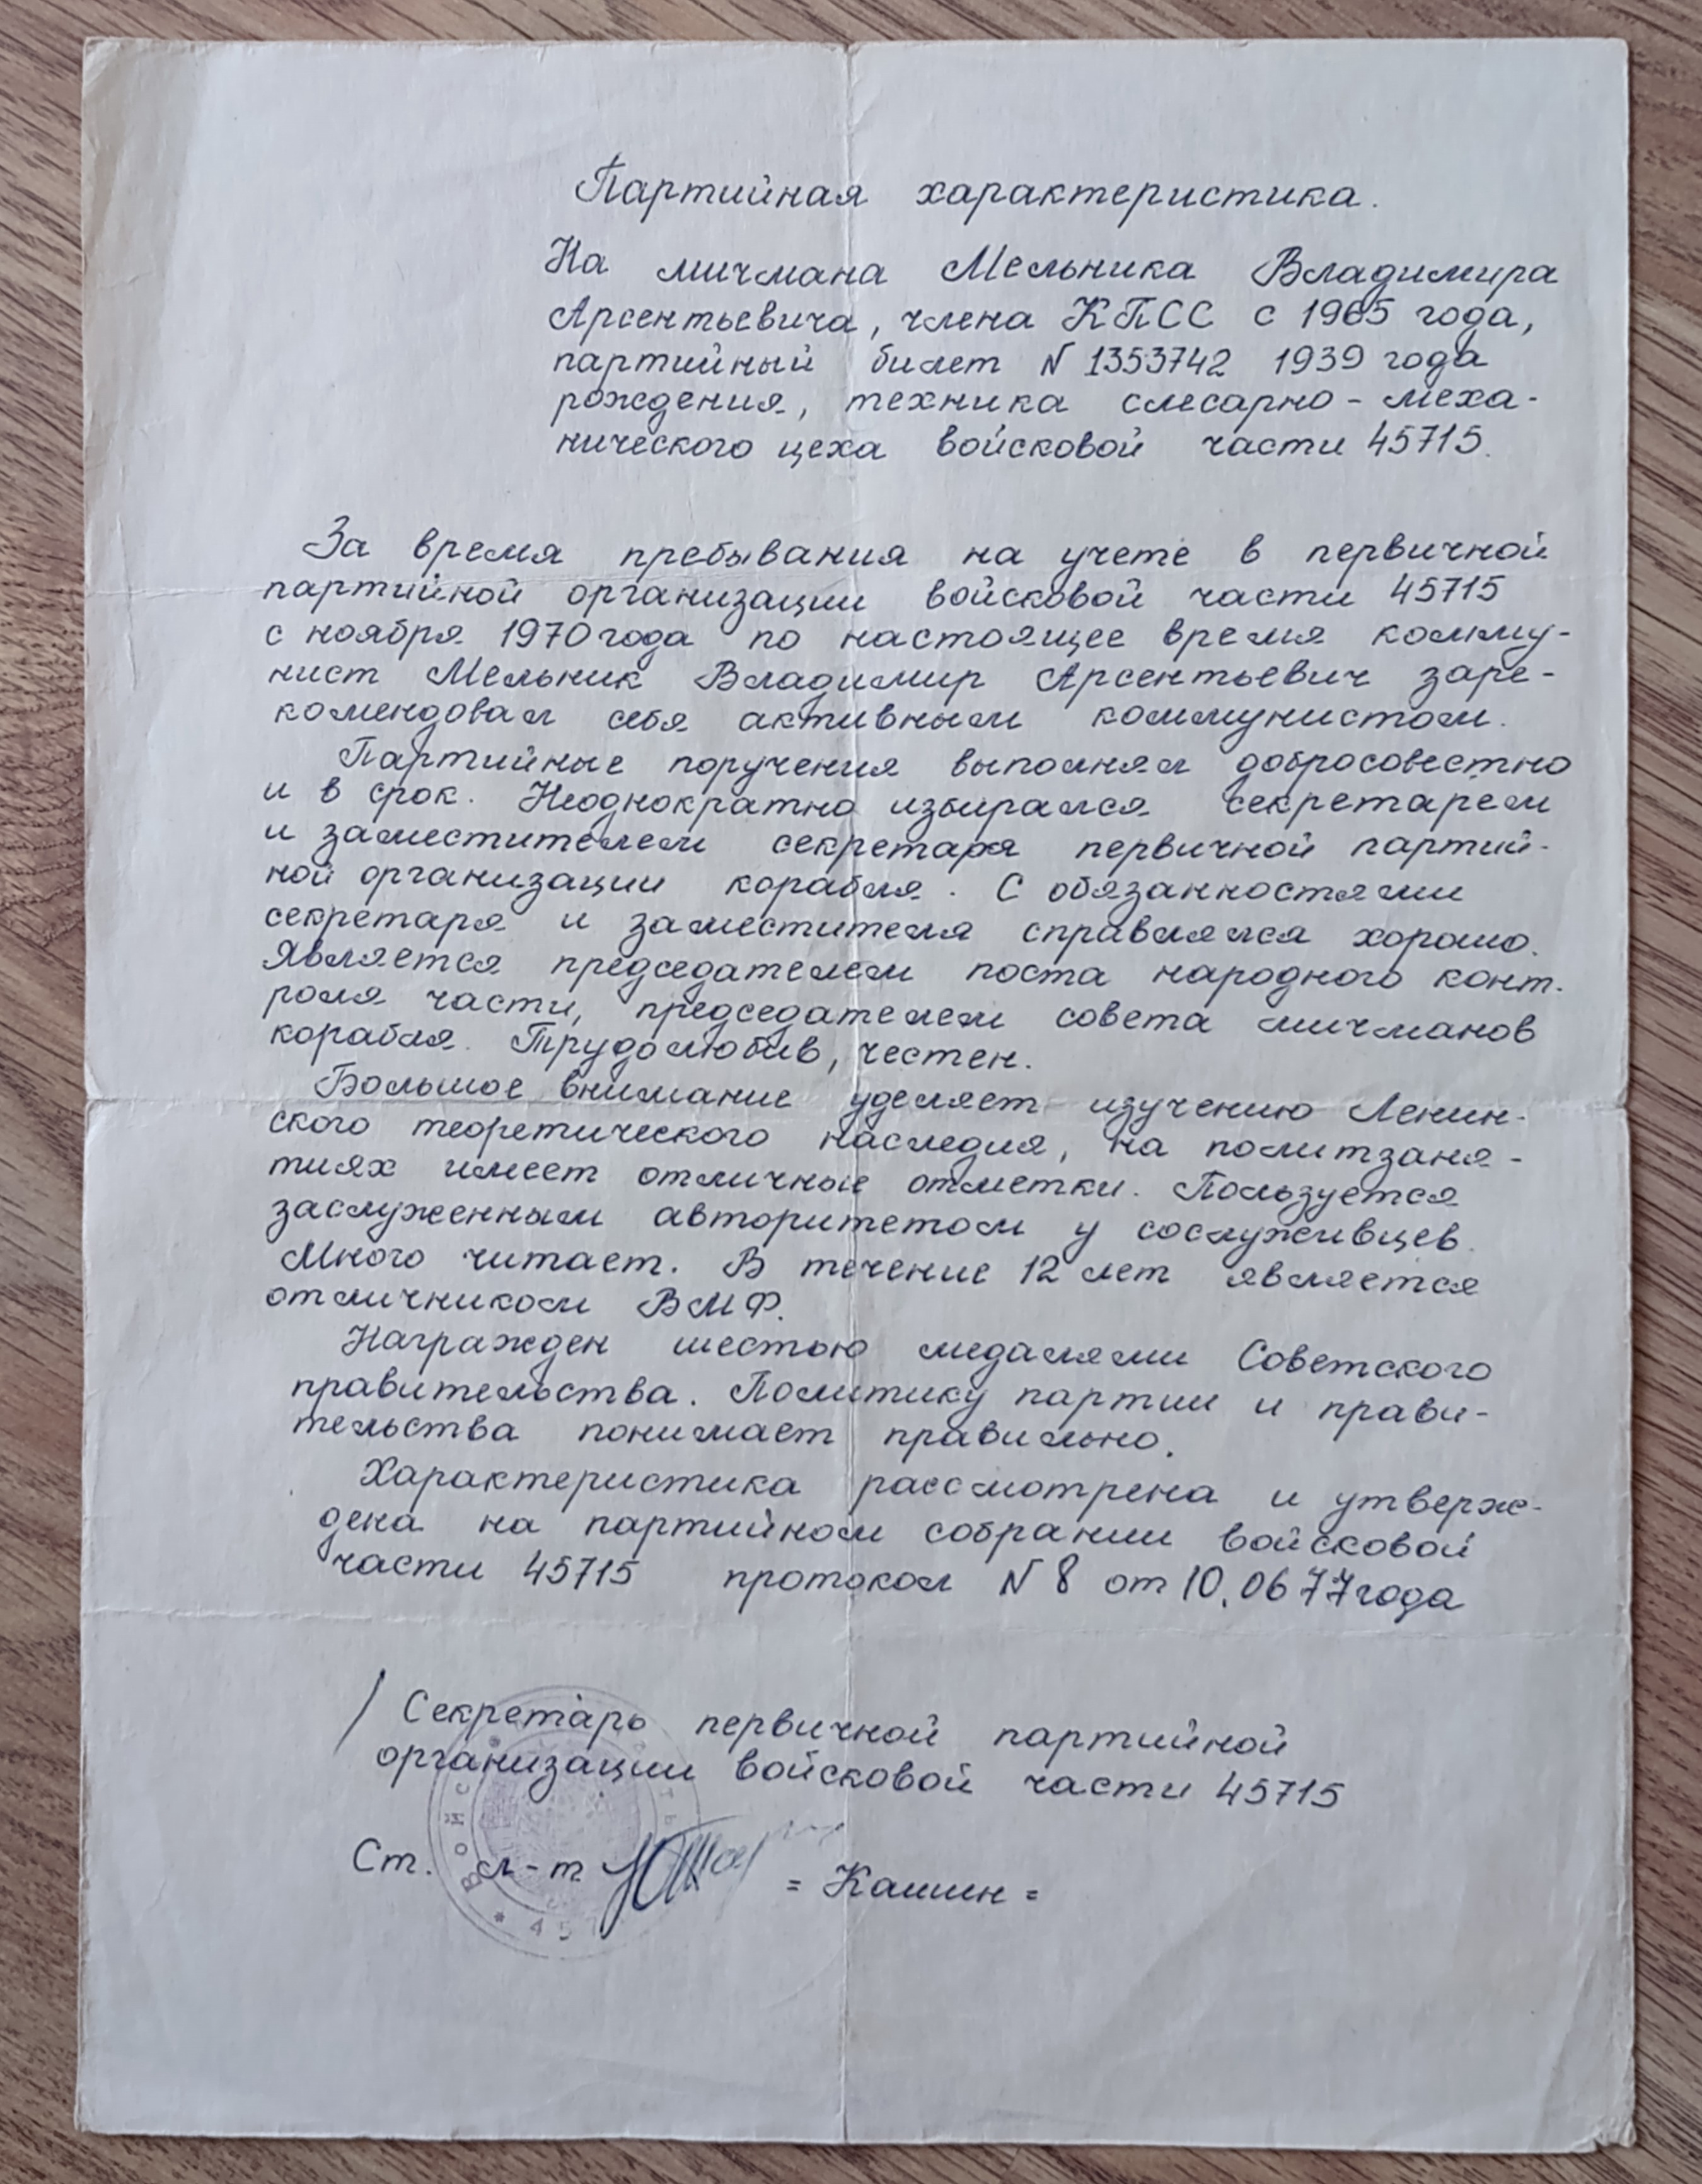 Партийная характеристика.
На мичмана Мельника Владимира
Арсентьевича, члена КПСС с 1965 года,
партийный билет N 1353742 1939 года
рождения, техника слесарно-меха-
нического цеха войсковой части 45715.
За время пребывания на учете в первичной
партийной организации войсковой части 45715
с ноября 1970 года по настоящее время комму-
нист Мельник Владимир Арсентьевич заре-
комендовал себя активным коммунистом.
Партийные поручения выполнял добросовестно
и в срок. Неоднократно избирался секретарем
и заместителем секретаря первичной партий-
ной организации корабля. С обязанностями
секретаря и заместителя справлялся хорошо.
Является председателем поста народного конт-
роля части, председателем совета мичманов
корабля. Трудолюбив, честен.
Большое внимание уделяет изучению Ленин-
ского теоретического наследия, на политзаня-
тиях имеет отличные отметки. Пользуется
заслуженным авторитетом у сослуживцев.
Много читает. В течение 12 лет является
отличником ВМФ.
Награжден шестью медалями Советского
правительства. Политику партии и прави-
тельства понимает правильно.
Характеристика рассмотрена и утверж-
дена на партийном собрании войсковой
части 45715 протокол N 8 от 10.06 77 года
Секретарь первичной партийной
организации войсковой части 45715
Ст. л-т = Кашин =